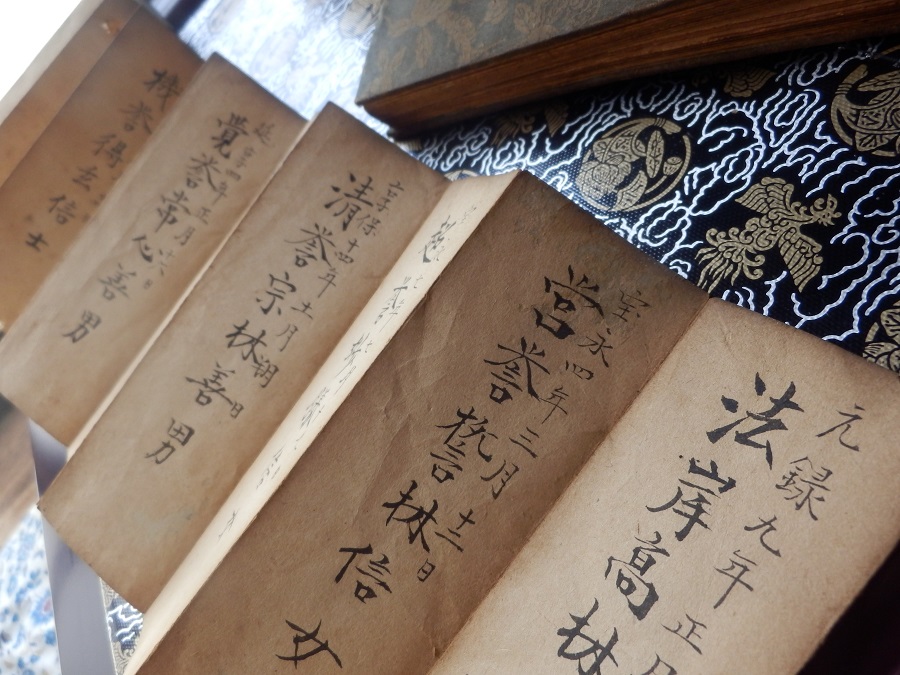 元録九年正月
法岸高林
宝永四年三月十二日
営誉誓林信女
享保十四年十一月朔日
清誉宗林善男
延宝四年正月
覺誉常心善男
機誉得玄信士